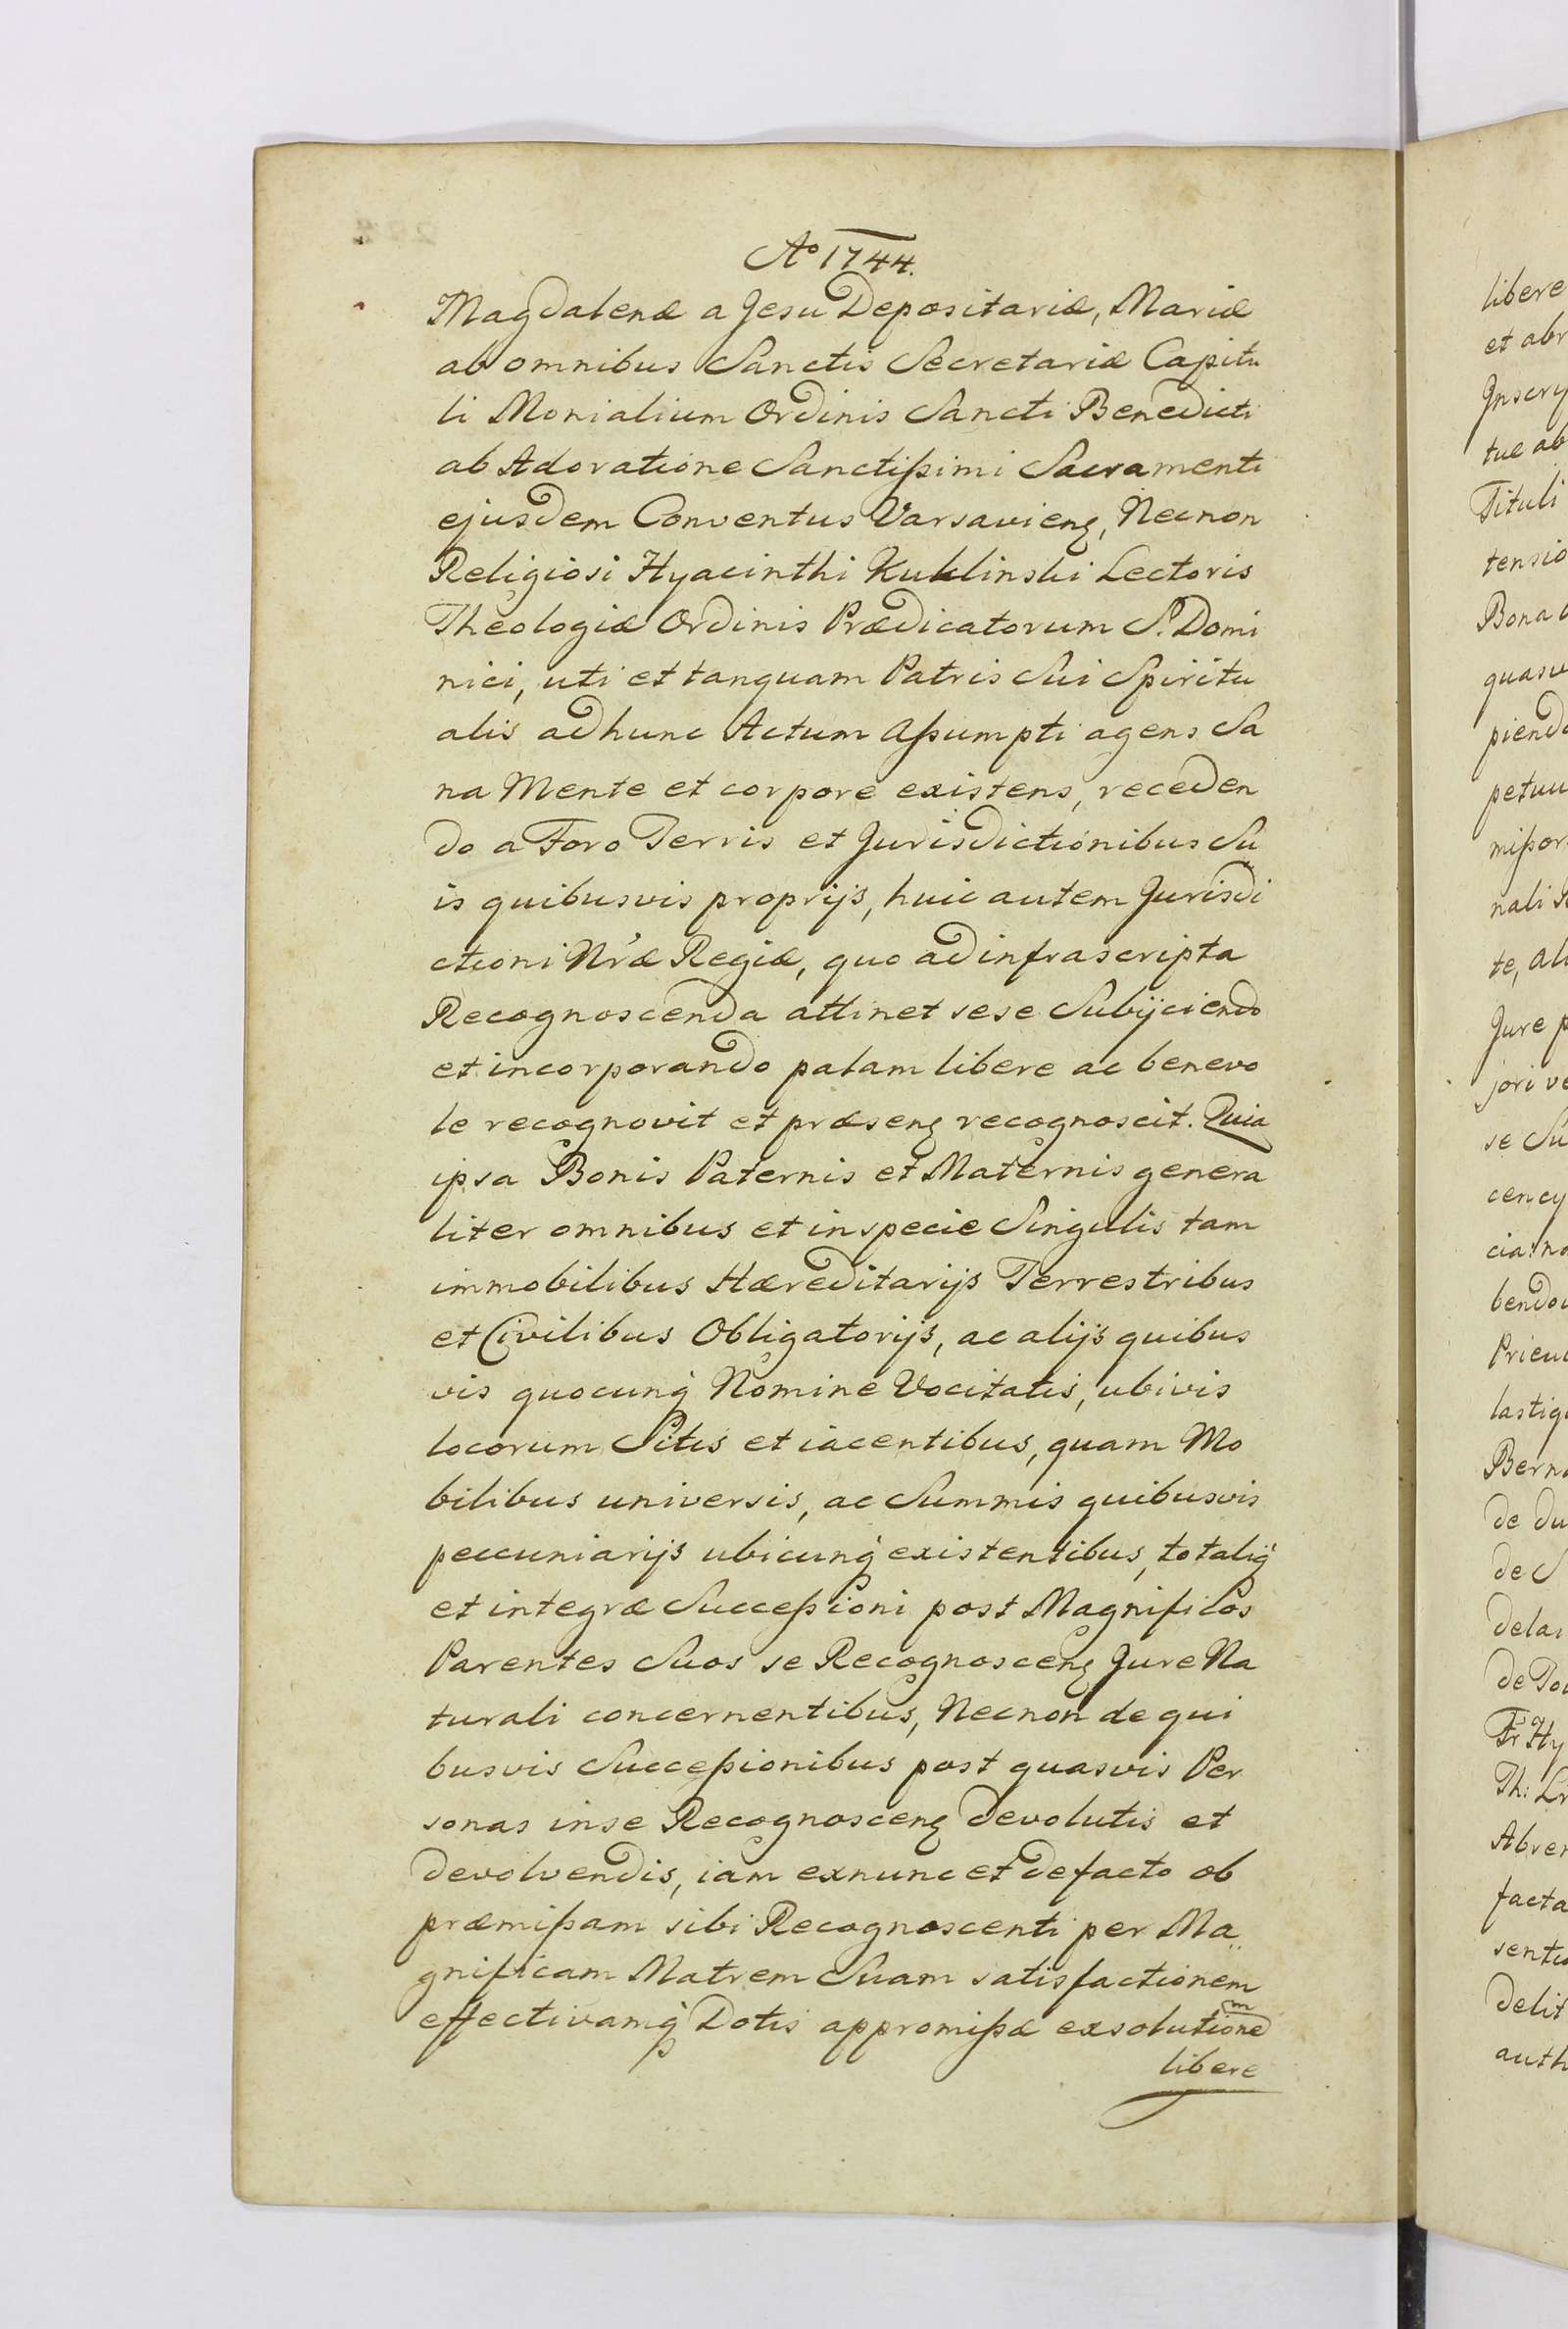 Ao 1744.
Magdalenæ a Jesu Depositariæ, Mariæ
ab omnibus Sanctis Secretariæ Capitu
li Monialium Ordinis Sancti Benedicti
ab Adoratione Sanctißimi Sacramenti
ejusdem Conventus Varsavien̄, Necnon
Religiosi Hyacinthi Kuklinski Lectoris
Theologiæ Ordinis Prædicatorum S. Domi
nici, uti et tanquam Patris Sui Spiritu
alis ad hunc Actum aßumpti agens Sa
na Mente et corpore existens, receden
do a Foro Terris et Jurisdictionibus Su
is quibusvis proprijs, huic autem Jurisdi
ctioni Nr'æ Regiæ, quo ad infrascripta
Recognoscenda attinet sese Subijciendo
et incorporando palam libere ac benevo
le recognovit et præsenꝫ recognoscit. Quia
ipsa Bonis Paternis et Maternis genera
liter omnibus et in specie Singulis tam
immobilibus Hæreditarijs Terrestribus
et Civilibus Obligatorijs, ac alijs quibus
vis quocunq́ Nomine Vocitatis, ubivis
locorum Sitis et iacentibus, quam Mo
bilibus universis, ac Summis quibusvis
peccuniarijs ubicunq́ existentibus, totaliq́
et integræ Succeßioni post Magnificos
Parentes Suos se Recognoscenꝫ Jure Na
turali concernentibus, Necnon de qui
busvis Succeßionibus post quasvis Per
sonas in se Recognoscenꝫ devolutis et
devolvendis, iam exnunc et de facto ob
præmißam sibi Recognoscenti per Ma
gnificam Matrem Suam satisfactionem
effectivamq́ Dotis appromißæ exsolutionem
libere
libere
et abr
Inscry
tue ab
Tituli
tensio
Bona
quasv
piendo
petuu
mißor
nali
te, ali
Jure p
jori ve
se Su
cency
cia: no
bendo
Prieu
lastiq
Berna
de du
de S
dela
de To
Fr Hy
Th: Lr
Abren
facta
sentu
delit
auth